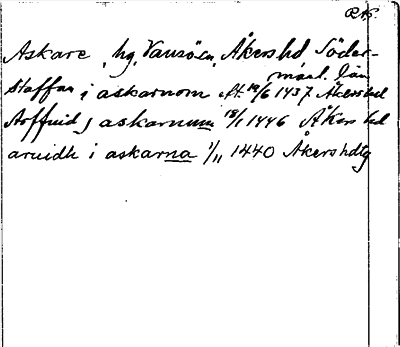 RAP.
Askare, hg, Vansö sn, Åkers hd Söder-
manl. län
Staffan i askarnom Af. 19/6 1437 Åkers hd
Arffuid j askarnum 18/1 1446 Åkers hd
aruidh i askarna 1/11 1440 Åkers hdtg